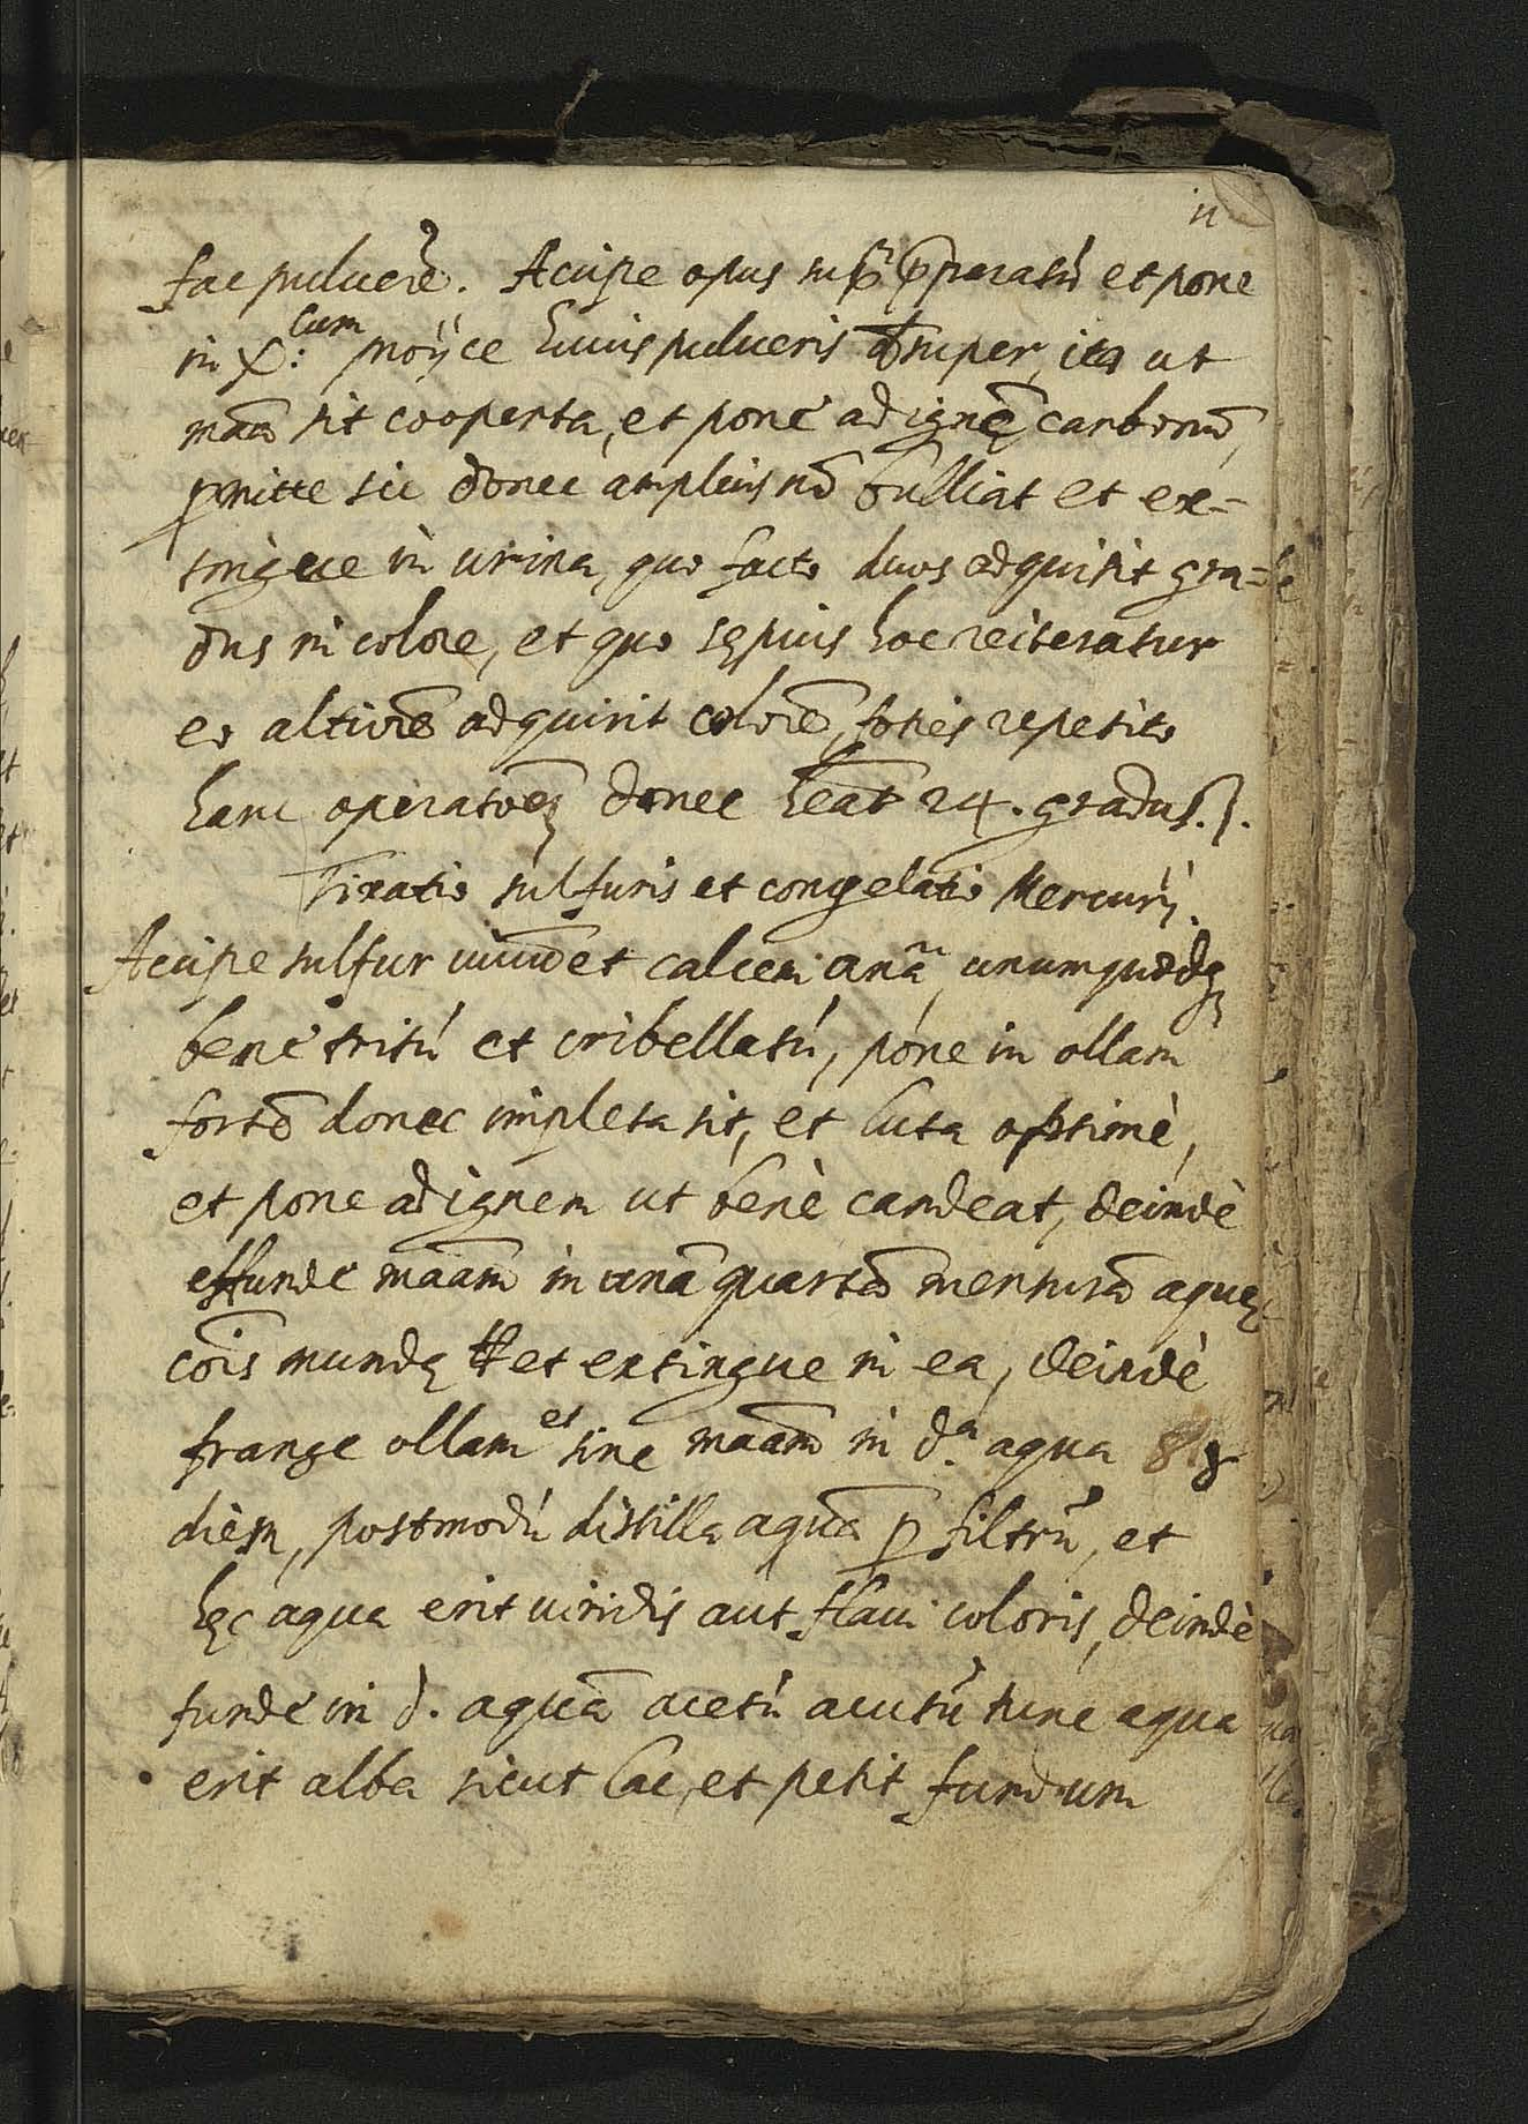 11
fac puluerē. Accipe opus sup̄ p̄paratū et pone
in X: cum proÿce huius pulueris super, ita ut
mā̃a sit cooperta, et pone ad ignē carbonū,
p̱mitte sic donec amplius nō bulliat et ex=
tingue in urina, quo facto duos adquirit gra=
dus in colore, et quo sępius hoc reiteratur
eo altiorē adquirit colorē, toties repetito
hanc operatōēz donec hēāt 24. gradus.
Fixatio sulfuris et congelatio Mercurÿ.
Accipe sulfur uiuū et calcem anã unumquodq
bene tritū et cribellatū, pone in ollam
fortē donec impleta sit, et luta optimè,
et pone ad ignem ut benè candeat, deindè
effunde māam in unā quartā mensurā aquę
cōis mundę et extingue in ea, deindè
frange ollam et sine māam in d.ª aqua p̱
dièm, postmodū distilla aquā p̱ filtrū, et
hęc aqua erit uiridis aut flaui coloris, deindè
funde in d. aquā acetū acutū tunc aqua
erit alba sicut lac, et petit fundum